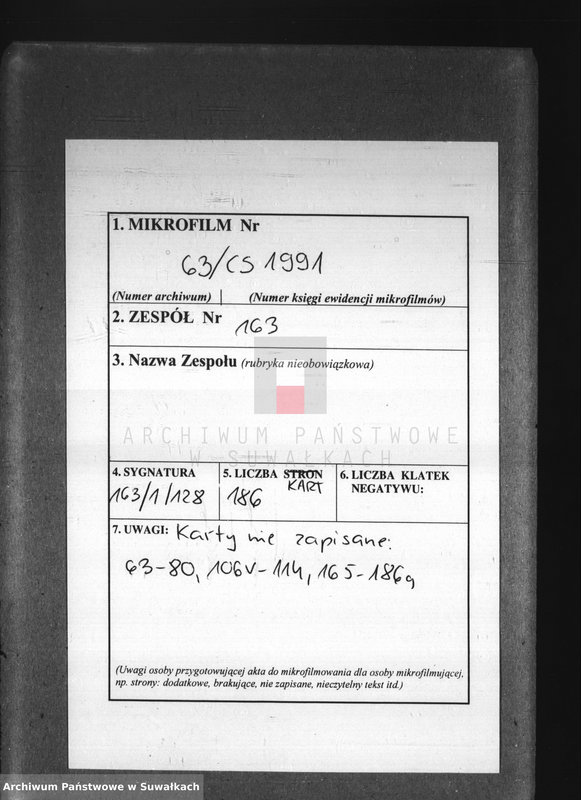 1. MIKROFILM Nr
63/CS 1991
(Numer archiwum) (Numer księgi ewidencji mikrofilmów)
2. ZESPÓŁ Nr 163
3. Nazwa Zespołu (rubryka nieobowiązkowa)
ARCHIWUM PAŃSTWOWE
W SUWAŁKACH
4. SYGNATURA
163/1/128
5. LICZBA STRON
KART
186
6. LICZBA KLATEK
NEGATYWU:
7. UWAGI: Karty nie zapisane:
63-80, 106v-114, 165-186a
(Uwagi osoby przygotowującej akta do mikrofilmowania dla osoby mikrofilmującej,
np. strony: dodatkowe, brakujące, nie zapisane, nieczytelny tekst itd.)
Archiwum Państwowe w Suwałkach